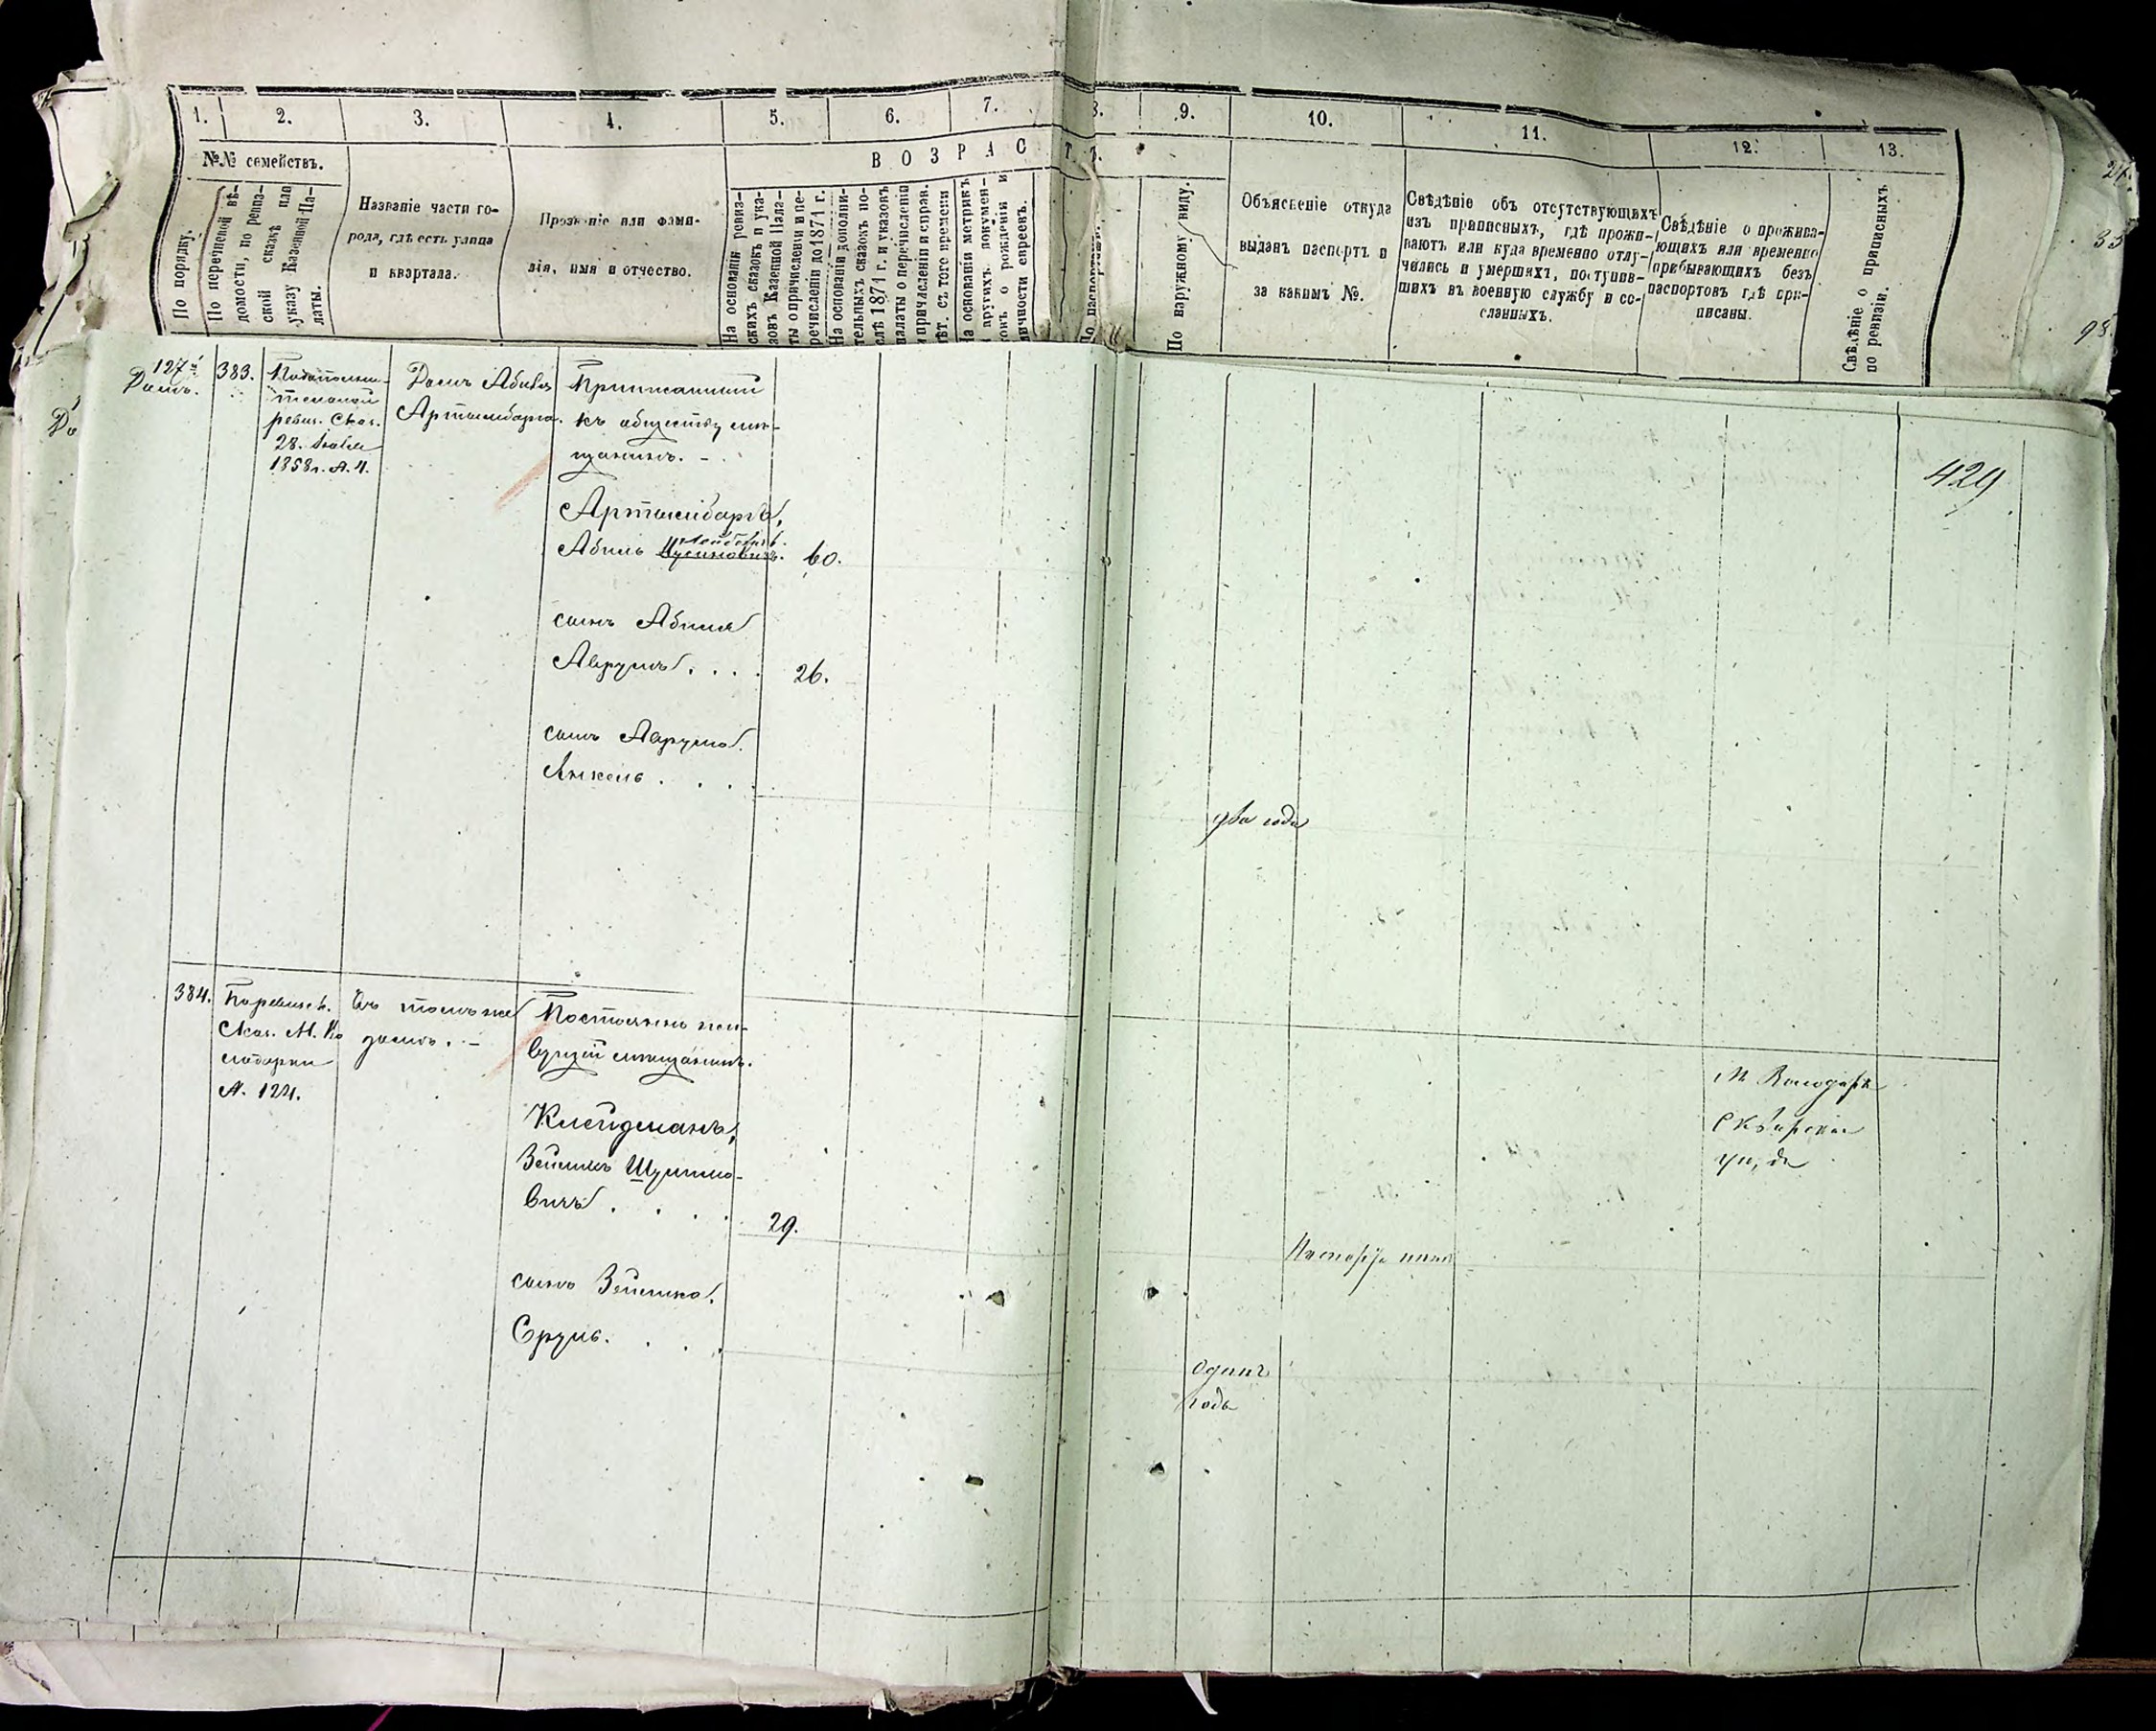 1. 2. 3. 4. 5. 6. 7. 8. 9. 10. 11. 12. 13.
№№ семействъ.
В О З Р А С Т Ъ.
По порядку.
По перечневой вѣ-
домости, по ревиз-
ской сказкѣ или
указу Казенной Па-
латы.
Названіе части го-
рода, гдѣ есть улица
и квартала.
Прозваніе или фами-
лія, имя и отчество.
На основаніи ревиз-
скихъ сказокъ и ука-
зовъ Казенной Пала-
ты о причисленіи и пе-
речисленіи до 1871 г.
На основаніи дополни-
тельныхъ сказокъ по-
слѣ 1871 г. и указовъ
палаты о перечисленіи
и причисленіи и справ.
лѣт. съ того времени
на основаніи метрикъ
и другихъ докумен-
о рожденіи и
личности евреевъ.
По наружному виду.
Объясненіе откуда
выданъ паспортъ и
за какимъ №.
Свѣдѣніе объ отсутствующихъ
изъ приписныхъ, гдѣ прожи-
ваютъ или куда временно отлу-
чились и умершихъ, поступив-
шихъ въ военную службу и со-
сланныхъ.
Свѣдѣніе о прожива-
ющихъ или временно
прибывающихъ безъ
паспортовъ гдѣ при-
писаны.
Свѣдѣніе о приписныхъ
по ревизіи.
127й
Домъ.
383.
ревиз. Сказ.
28.
1858 г. №. 4.
Домъ Абиля
Артынсбарга.
Приписанный
къ обществу мѣ-
щанинъ. -
Абиль
60.
сынъ Абиля
Аврумъ . . .
26.
сынъ Аврума.
Янкель . . .
два года
429
384.
По ревизск.
Сказ. М. Во
лодарки
№. 124.
Въ томъ же
домѣ. -
Постоянно жи-
вущій мѣщанинъ.
Клейдманъ,
Зейликъ Шулимо-
вичъ . . . .
29.
сынъ Зейлика.
Сруль. . . .
М Володарк
Сквирска
уѣзда
Одинъ
годъ